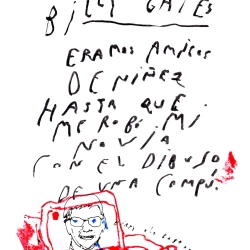 BILLY GATES
ERAMOS AMIGOS
DE NIÑEZ
HASTA QUE
ME ROBÓ MI
NOVIA
CON EL DIBUJO
DE UNA COMPÚ.